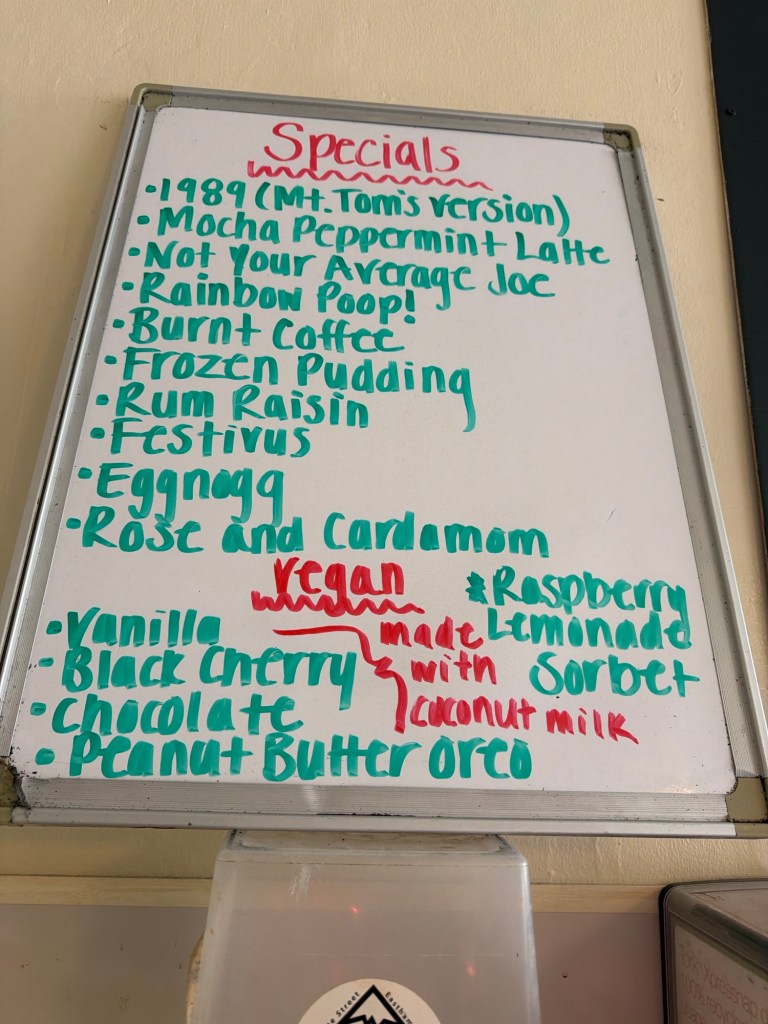 Specials
•1989 (Mt. Tom's version)
•Mocha Peppermint Latte
•Not Your Average Joe
•Rainbow Poop!
•Burnt Coffee
•Frozen Pudding
•Rum Raisin
•Festivus
•Eggnogg
•Rose and Cardamom
vegan
*Raspberry
Lemonade
Sorbet
•Vanilla
•Black Cherry
•Chocolate
•Peanut Butter Oreo
made
with
coconut milk
Street
Eastham